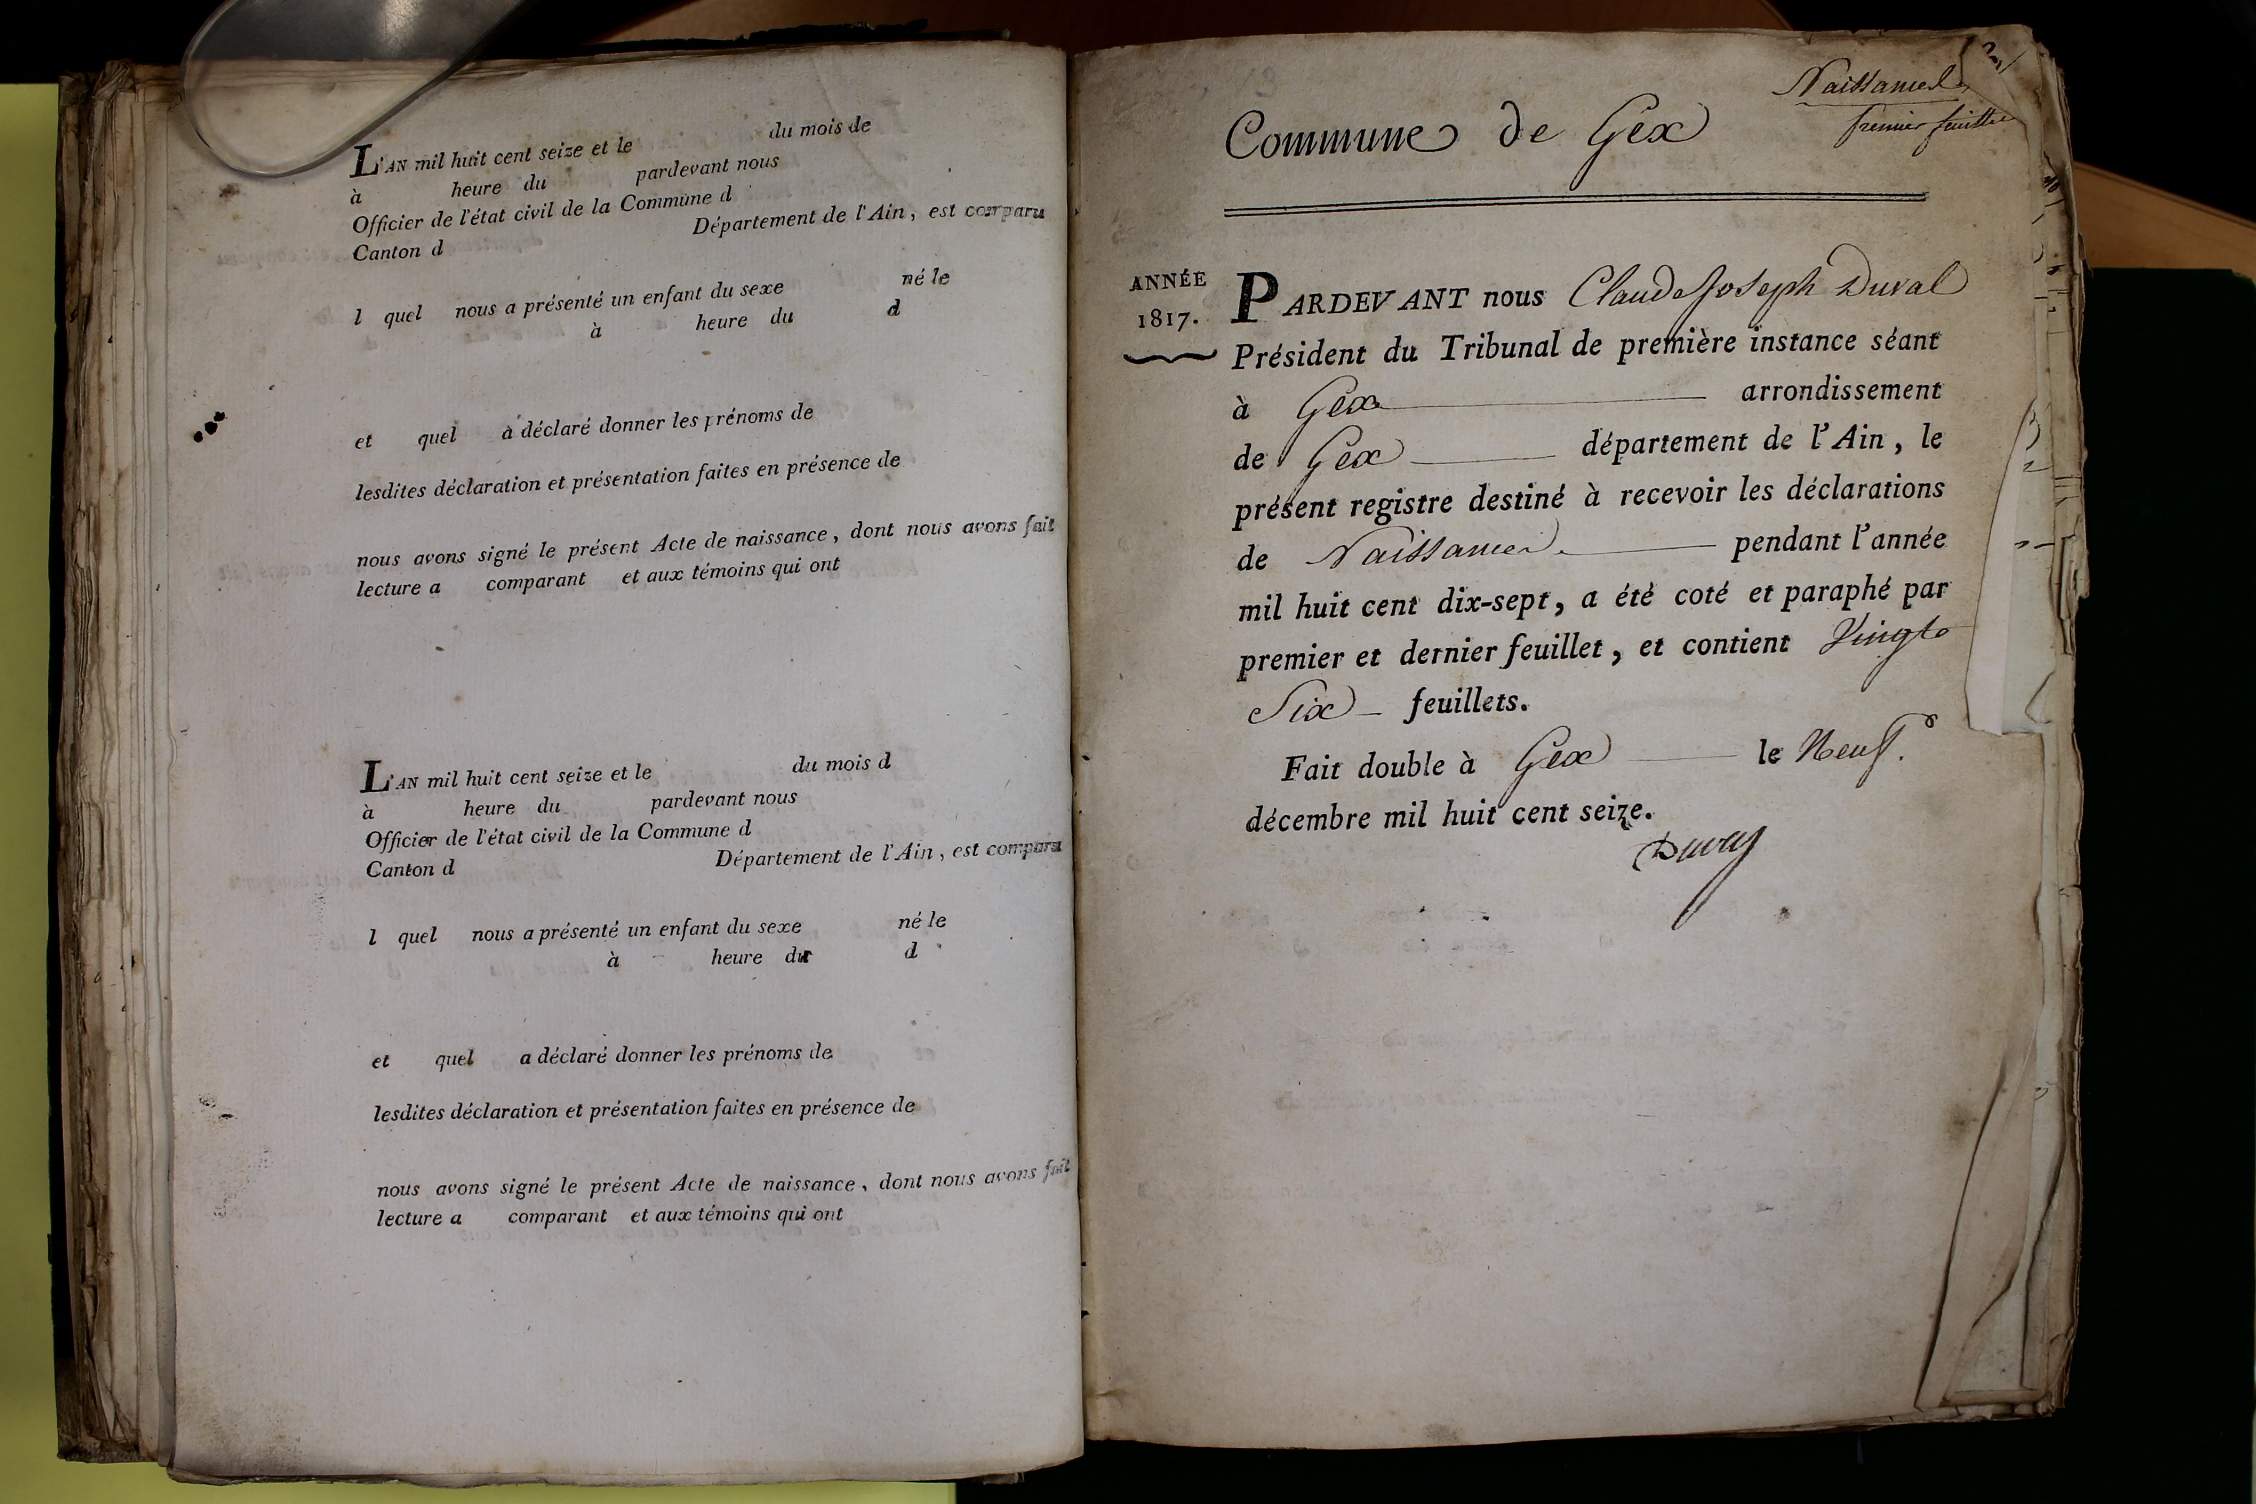 L'AN mil huit cent seize et le du mois de
à heure du pardevant nous
Officier de l'état civil de la Commune d
Canton d Département de l'Ain, est comparu
l quel nous a présenté un enfant du sexe né le
à heure du d
et quel à déclaré donner les prénoms de
lesdites déclaration et présentation faites en présence de
nous avons signé le présent Acte de naissance, dont nous avons fait
lecture a comparant et aux témoins qui ont
L'AN mil huit cent seize et le du mois d
à heure du pardevant nous
Officier de l'état civil de la Commune d
Canton d Département de l'Ain, est comparu
l quel nous a présenté un enfant du sexe né le
à heure du d
et quel a déclaré donner les prénoms de
lesdites déclaration et présentation faites en présence de
nous avons signé le présent Acte de naissance, dont nous avons fait
lecture a comparant et aux témoins qui ont
Naissances
premier feuillet
Commune de Gex
ANNÉE
1817.
PARDEVANT nous Claude Joseph Duval
Président du Tribunal de première instance séant
à Gex arrondissement
de Gex département de l'Ain, le
présent registre destiné à recevoir les déclarations
de Naissances pendant l'année
mil huit cent dix-sept, a été coté et paraphé par
premier et dernier feuillet, et contient Vingt
Six feuillets.
Fait double à Gex le Neuf
décembre mil huit cent seize.
Duval